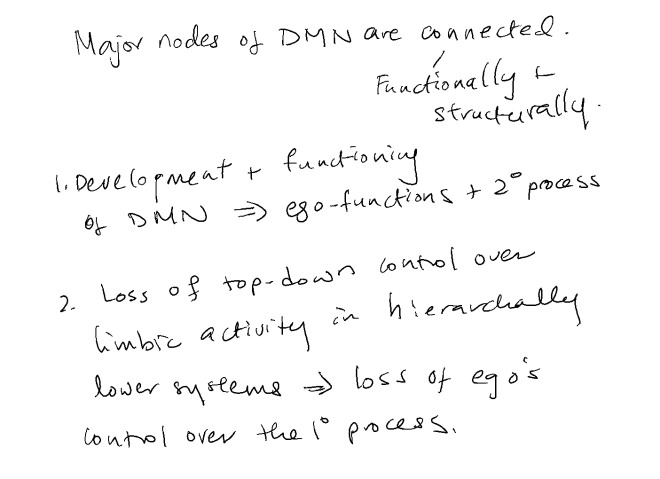 Major nodes of DMN are connected.
Functionally +
structurally.
1. Development + functioning
of DMN ⇒ ego-functions + 2° process
2. Loss of top-down control over
limbic activity in hierarchally
lower systems ⇒ loss of ego's
control over the 1° process.